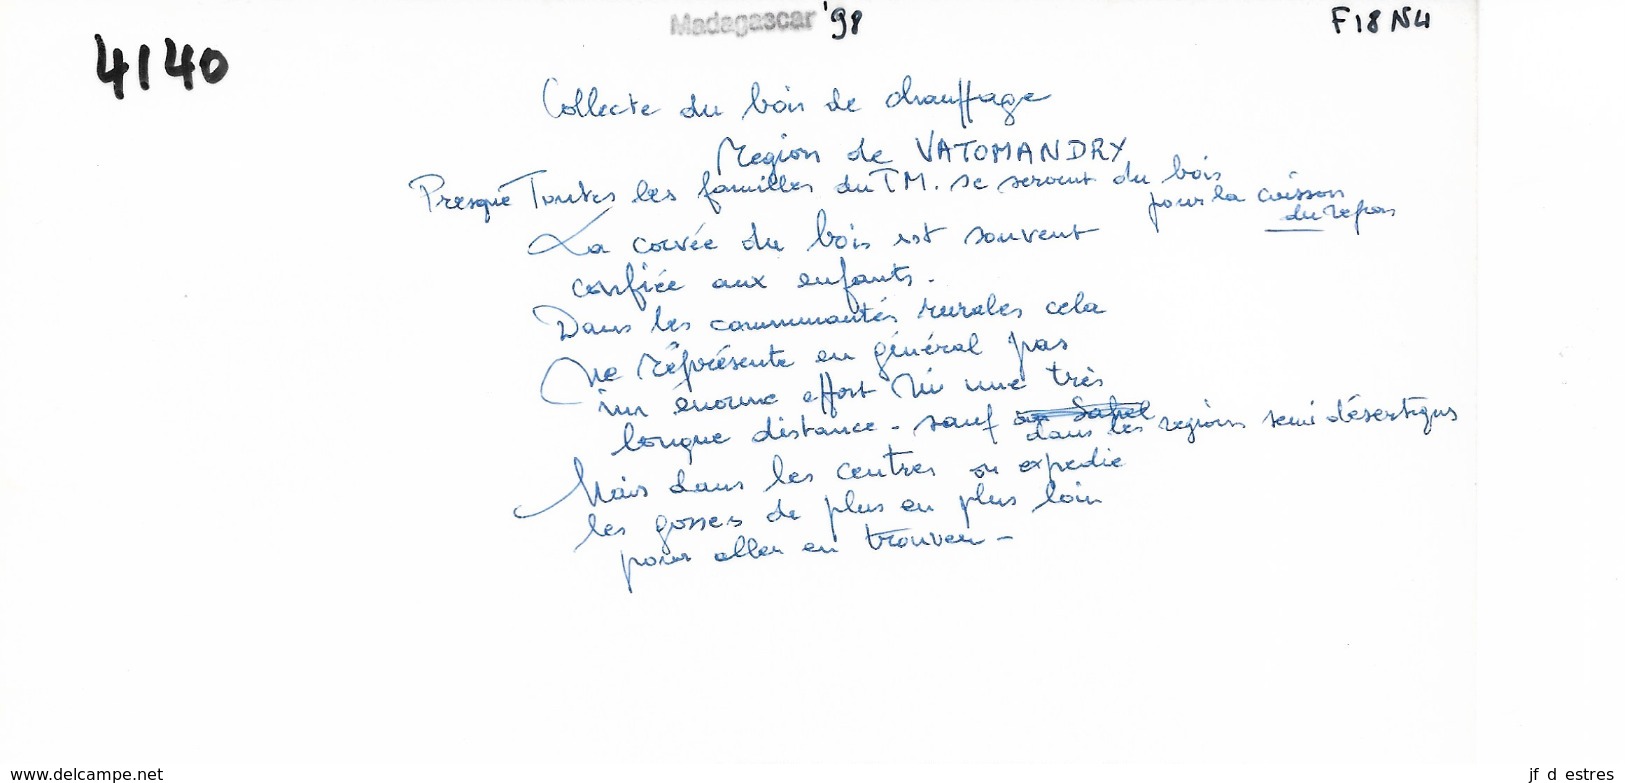 Madagascar '98
F18 N4
4140
Collecte du bois de chauffage
Region de VATOMANDRY
Presque Toutes les familles du TM. se servent du bois
pour la cuisson
du repas
La corvée du bois est souvent
confiée aux enfants.
Dans les communautés rurales cela
ne réprésente en général pas
un énorme effort ni une très
longue distance - sauf au Sahel
dans les regions semi désertiques
Mais dans les centres on expedie
les gosses de plus en plus loin
pour aller en trouver -
www.delcampe.net
jf d estres